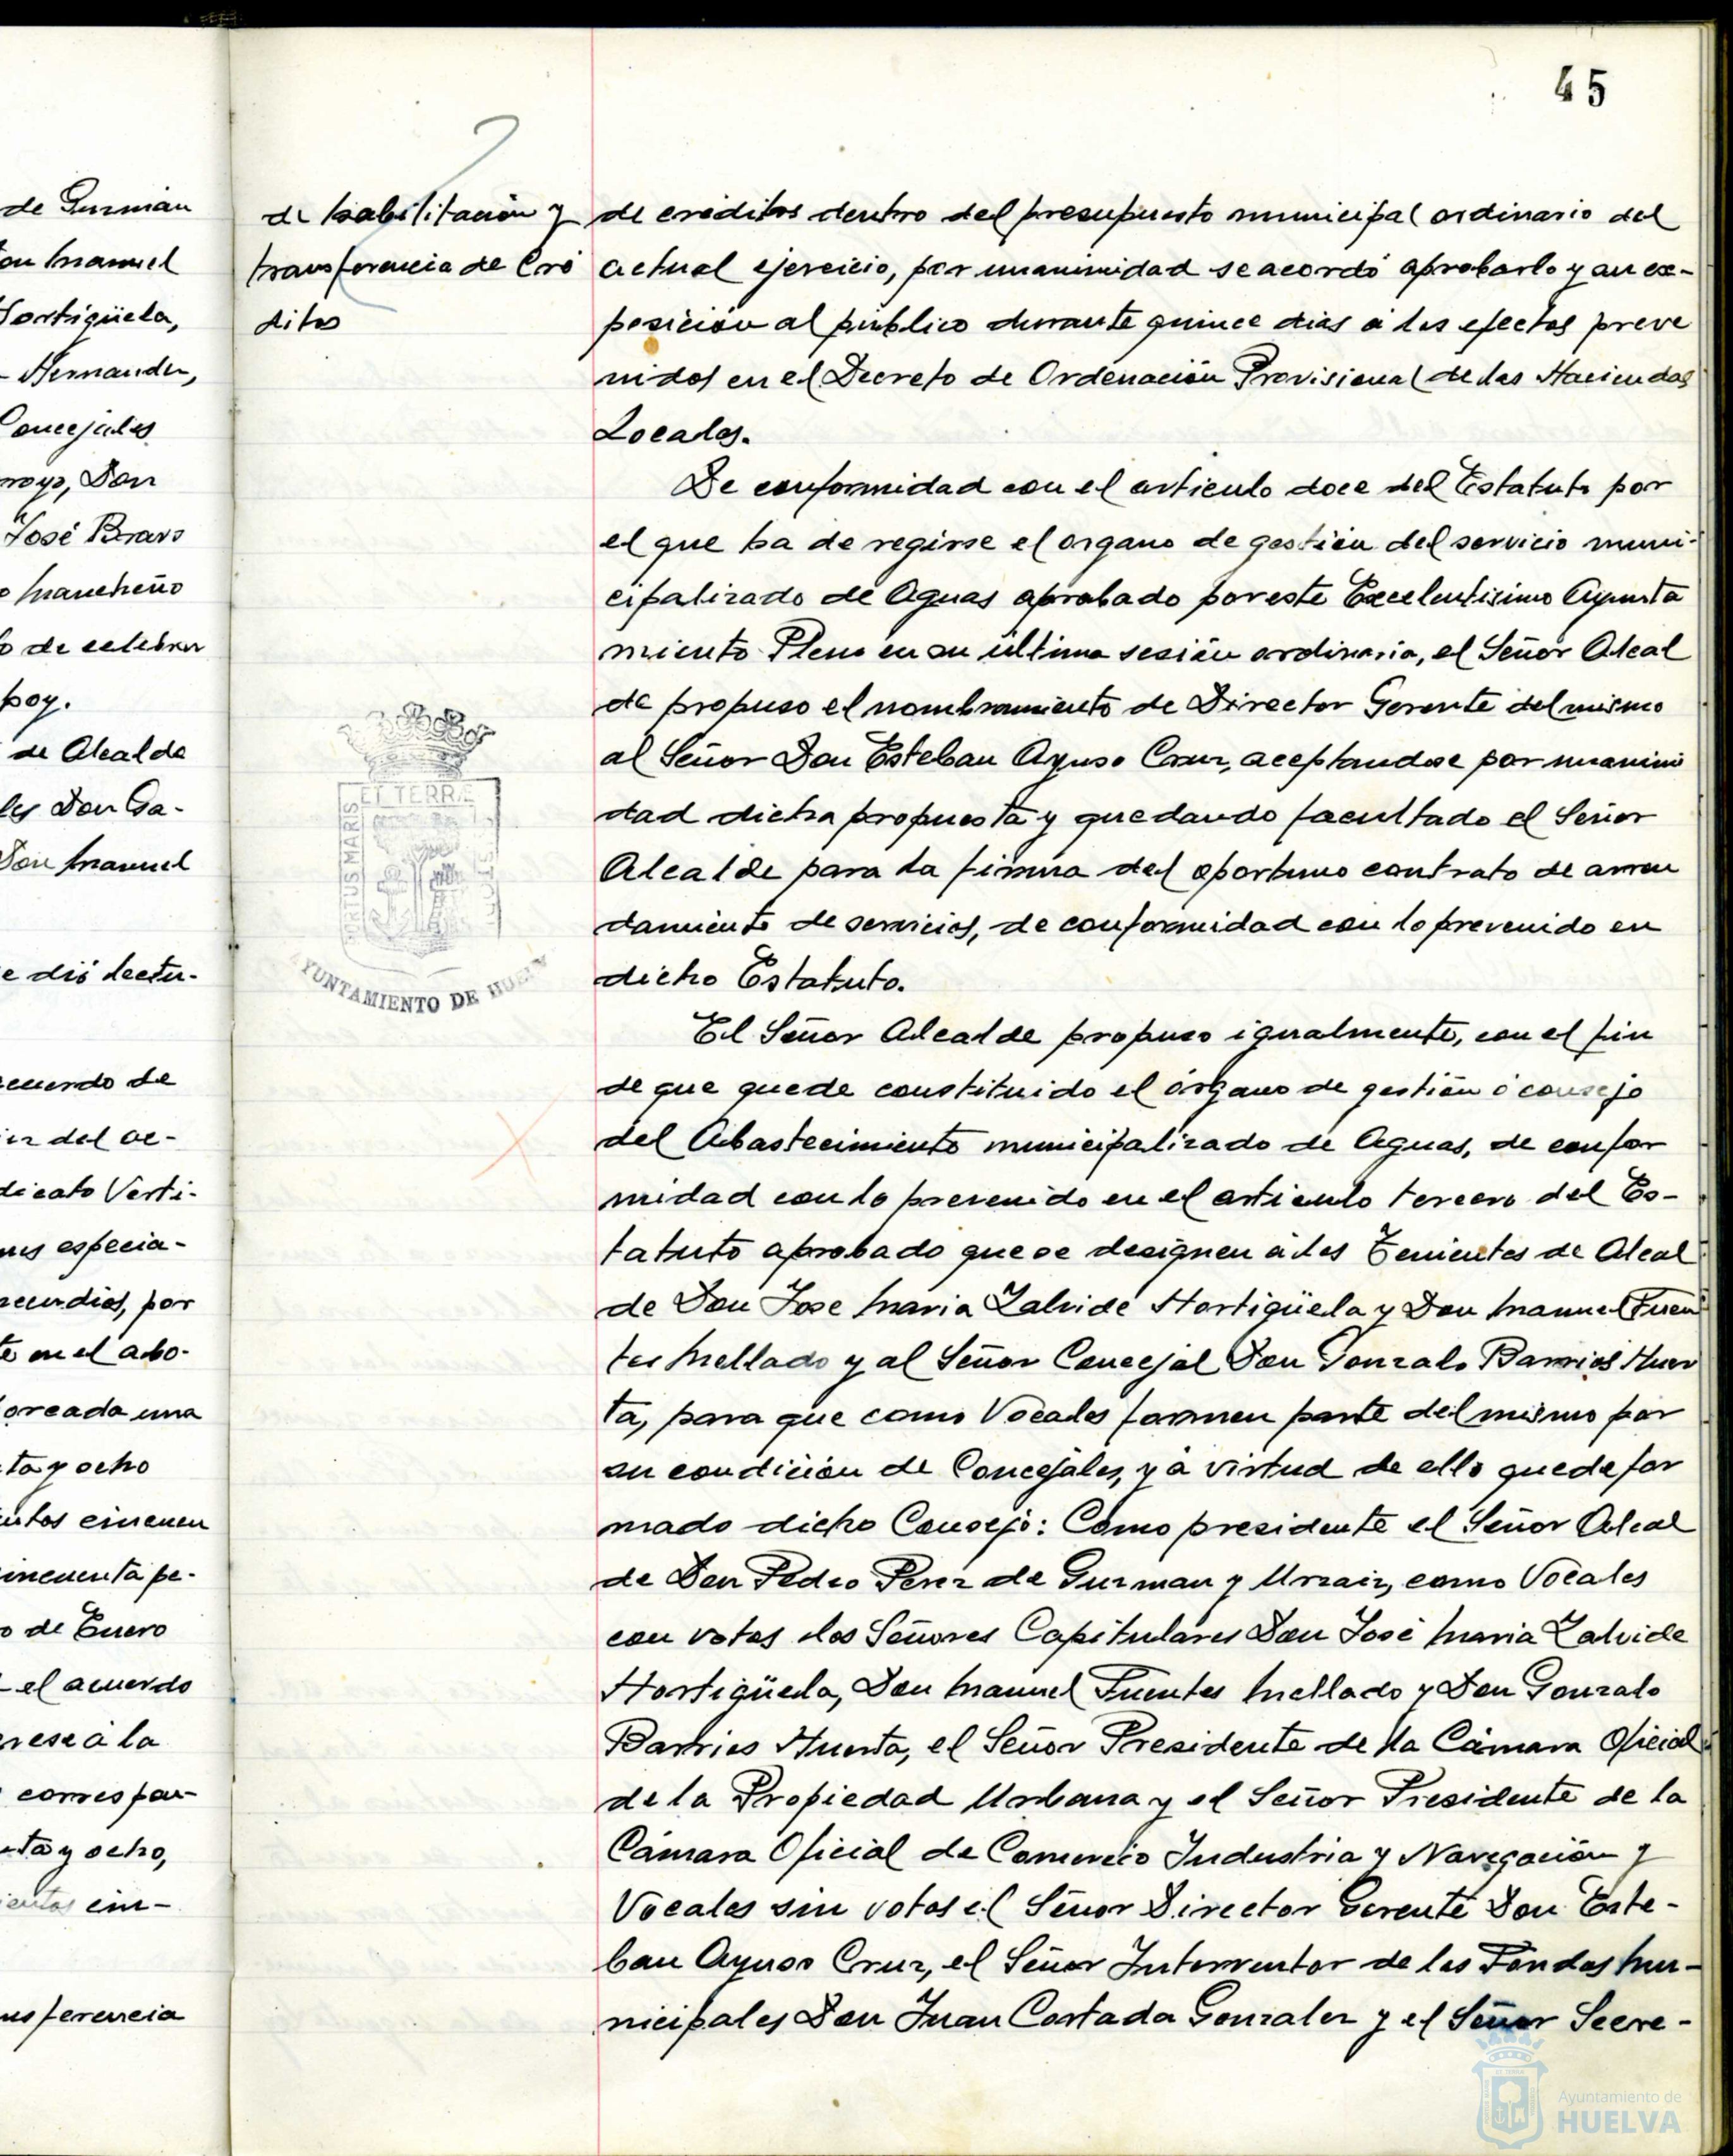 45
de Guzmán
on Manuel
Hortigüela,
Hernandez,
Concejales
rroyo, Don
José Bravo
o Mancheño
o de celebrar
hoy.
de Alcalde
les Don Ga-
Don Manuel
e dió lectu-
cuerdo de
del ac-
dicato Verti-
especia-
ncendios, por
te en el abo-
oreada una
ta y ocho
entos cincuen
cincuenta pe-
o de Enero
el acuerdo
rese á la
correspon-
nta y ocho,
cientos cin-
nsferencia
de habilitación y
transferencia de Cré
ditos
ET TERRÆ
PORTUS MARIS
AYUNTAMIENTO DE HUELVA
de créditos dentro del presupuesto municipal ordinario del
actual ejercicio, por unanimidad se acordó aprobarlo y su ex-
posición al público durante quince dias á los efectos preve
nidos en el Decreto de Ordenación Provisional de las Haciendas
Locales.
De conformidad con el articulo doce del Estatuto por
el que ha de regirse el organo de gestión del servicio muni-
cipalizado de Aguas aprobado por este Excelentisimo Ayunta
miento Pleno en su última sesión ordinaria, el Señor Alcal
de propuso el nombramiento de Director Gerente del mismo
al Señor Don Esteban Ayuso Cruz, aceptandose por unanimi
dad dicha propuesta y quedando facultado el Señor
Alcalde para la firma del oportuno contrato de arren
damiento de servicios, de conformidad con lo prevenido en
dicho Estatuto.
El Señor Alcalde propuso igualmente, con el fin
de que quede constituido el órgano de gestión ó consejo
del Abastecimiento municipalizado de Aguas, de confor
midad con lo prevenido en el articulo tercero del Es-
tatuto aprobado que se designen á los Tenientes de Alcal
de Don Jose Maria Zalvide Hortigüela y Don Manuel Fuen
tes Mellado y al Señor Concejal Don Gonzalo Barrios Huer
ta, para que como Vocales formen parte del mismo por
su condición de Concejales, y á virtud de ello quede for
mado dicho Consejo: Como presidente el Señor Alcal
de Don Pedro Perez de Guzman y Urzaiz, como Vocales
con votos los Señores Capitulares Don José Maria Zalvide
Hortigüela, Don Manuel Fuentes Mellado y Don Gonzalo
Barrios Huerta, el Señor Presidente de la Cámara Oficial
de la Propiedad Urbana y el Señor Presidente de la
Cámara Oficial de Comercio Industria y Navegación y
Vocales sin votos el Señor Director Gerente Don Este-
ban Ayuso Cruz, el Señor Interventor de los Fondos Mu-
nicipales Don Juan Cortada Gonzalez y el Señor Secre-
Ayuntamiento de
HUELVA